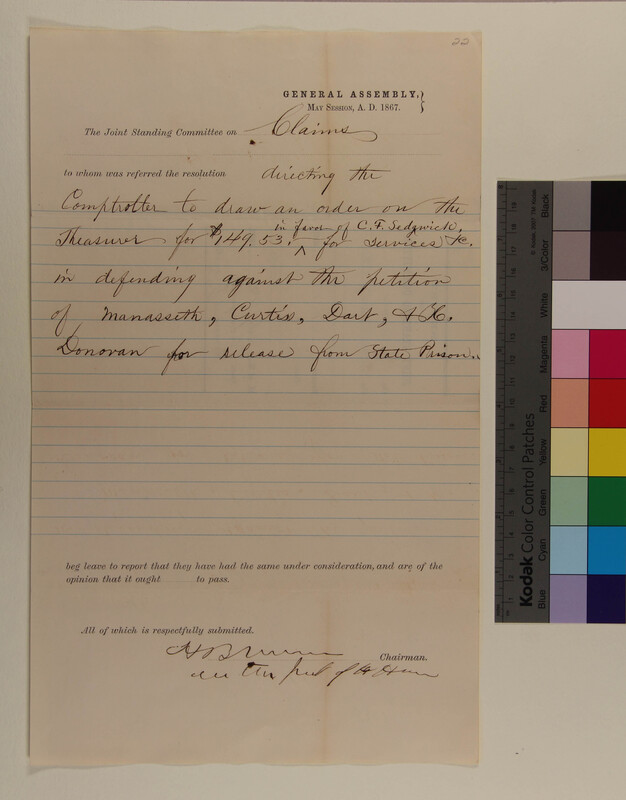 22
GENERAL ASSEMBLY,
MAY SESSION, A. D. 1867.
The Joint Standing Committee on Claims
to whom was referred the resolution directing the
Comptroller to draw an order on the
in favor of C. F. Sedgwick,
Treasurer for $149.53. ^ for services &c.
in defending against the petition
of Manasseth, Curtis, Dart, & H.
Donovan for release from State Prison.
beg leave to report that they have had the same under consideration, and are of the
opinion that it ought to pass.
All of which is respectfully submitted.
Chairman.
of
Kodak Color Control Patches
Blue Cyan Green Yellow Red Magenta White 3/Color Black